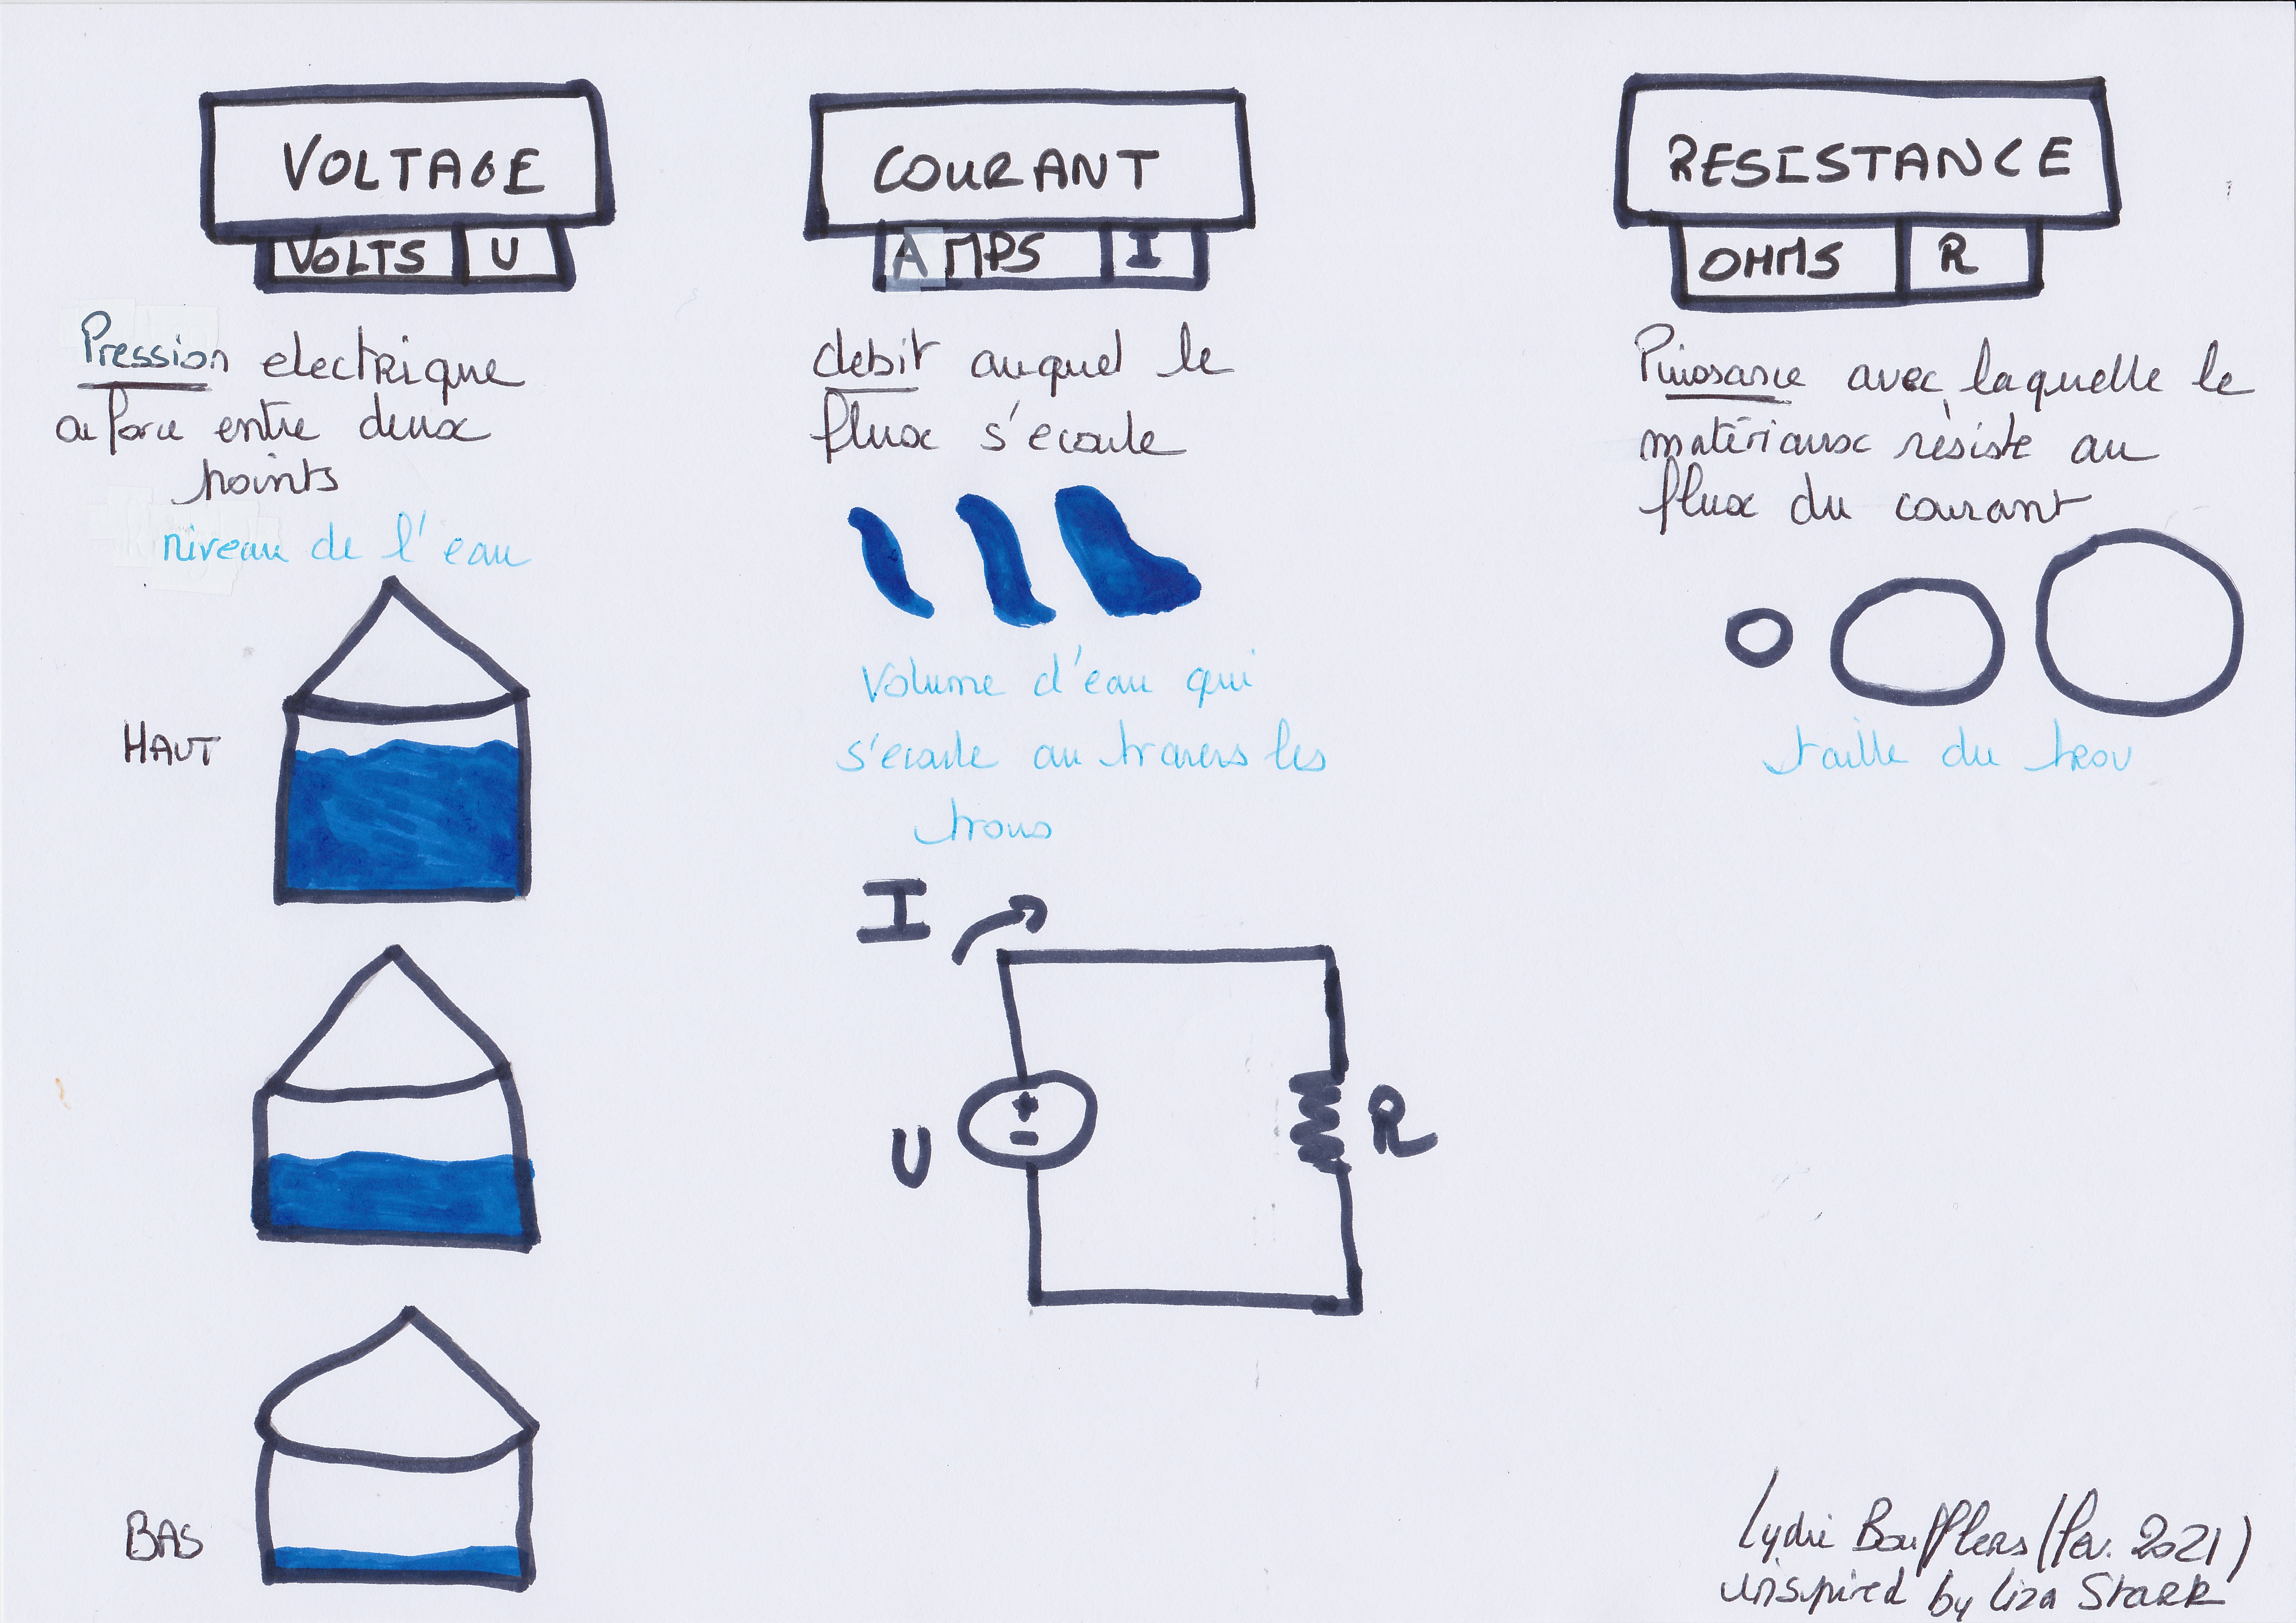 VOLTAGE
VOLTS U
Pression electrique
ou force entre deux
points
niveau de l'eau
HAUT
BAS
COURANT
AMPS I
debit auquel le
flux s'ecoule
Volume d'eau qui
s'ecoule au travers les
trous
I
U
+
-
R
RESISTANCE
OHMS R
Puissance avec laquelle le
matériaux résiste au
flux du courant
taille du trou
Lydie Boufflers (fev. 2021)
inspired by Liza Stark